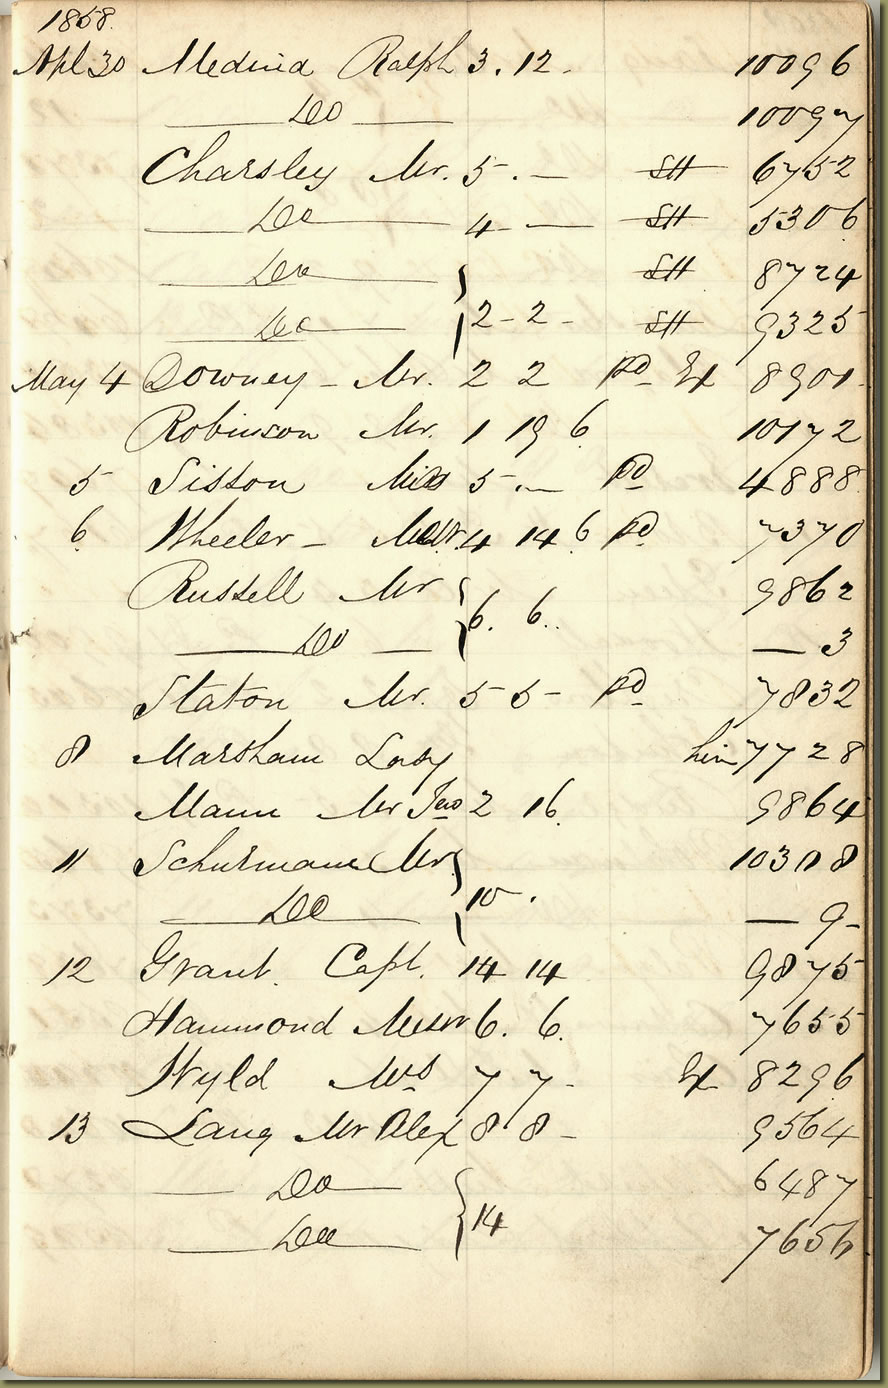 1858.
Apl 30 Medina Ralph 3. 12. 10096
Do 10097
Charsley Mr. 5. — SH 6752
Do 4 — SH 5306
Do SH 8724
Do 2 - 2 - SH 9325
May 4 Downey - Mr. 2 2 pd Ex 8901
Robinson Mr. 1 19 6 10172
5 Sisson Miss 5 — pd 4888
6 Wheeler - 4 14 6 pd 7370
Russell Mr 9862
Do 6. 6.. — 3
Staton Mr. 5 5 - pd 7832
8 Marsham Lady 7728
Mann Mr Jno 2 16. 9864
11 Schurmann Mr 10308
Do 10 . — 9 -
12 Grant. Capt. 14 14 9875
Hammond 6. 6. 7655
Wyld Mrs 7 7 - Ex 8296
13 Lang Mr Alex 8 8 - 9564
Do 6487
Do 14 7656